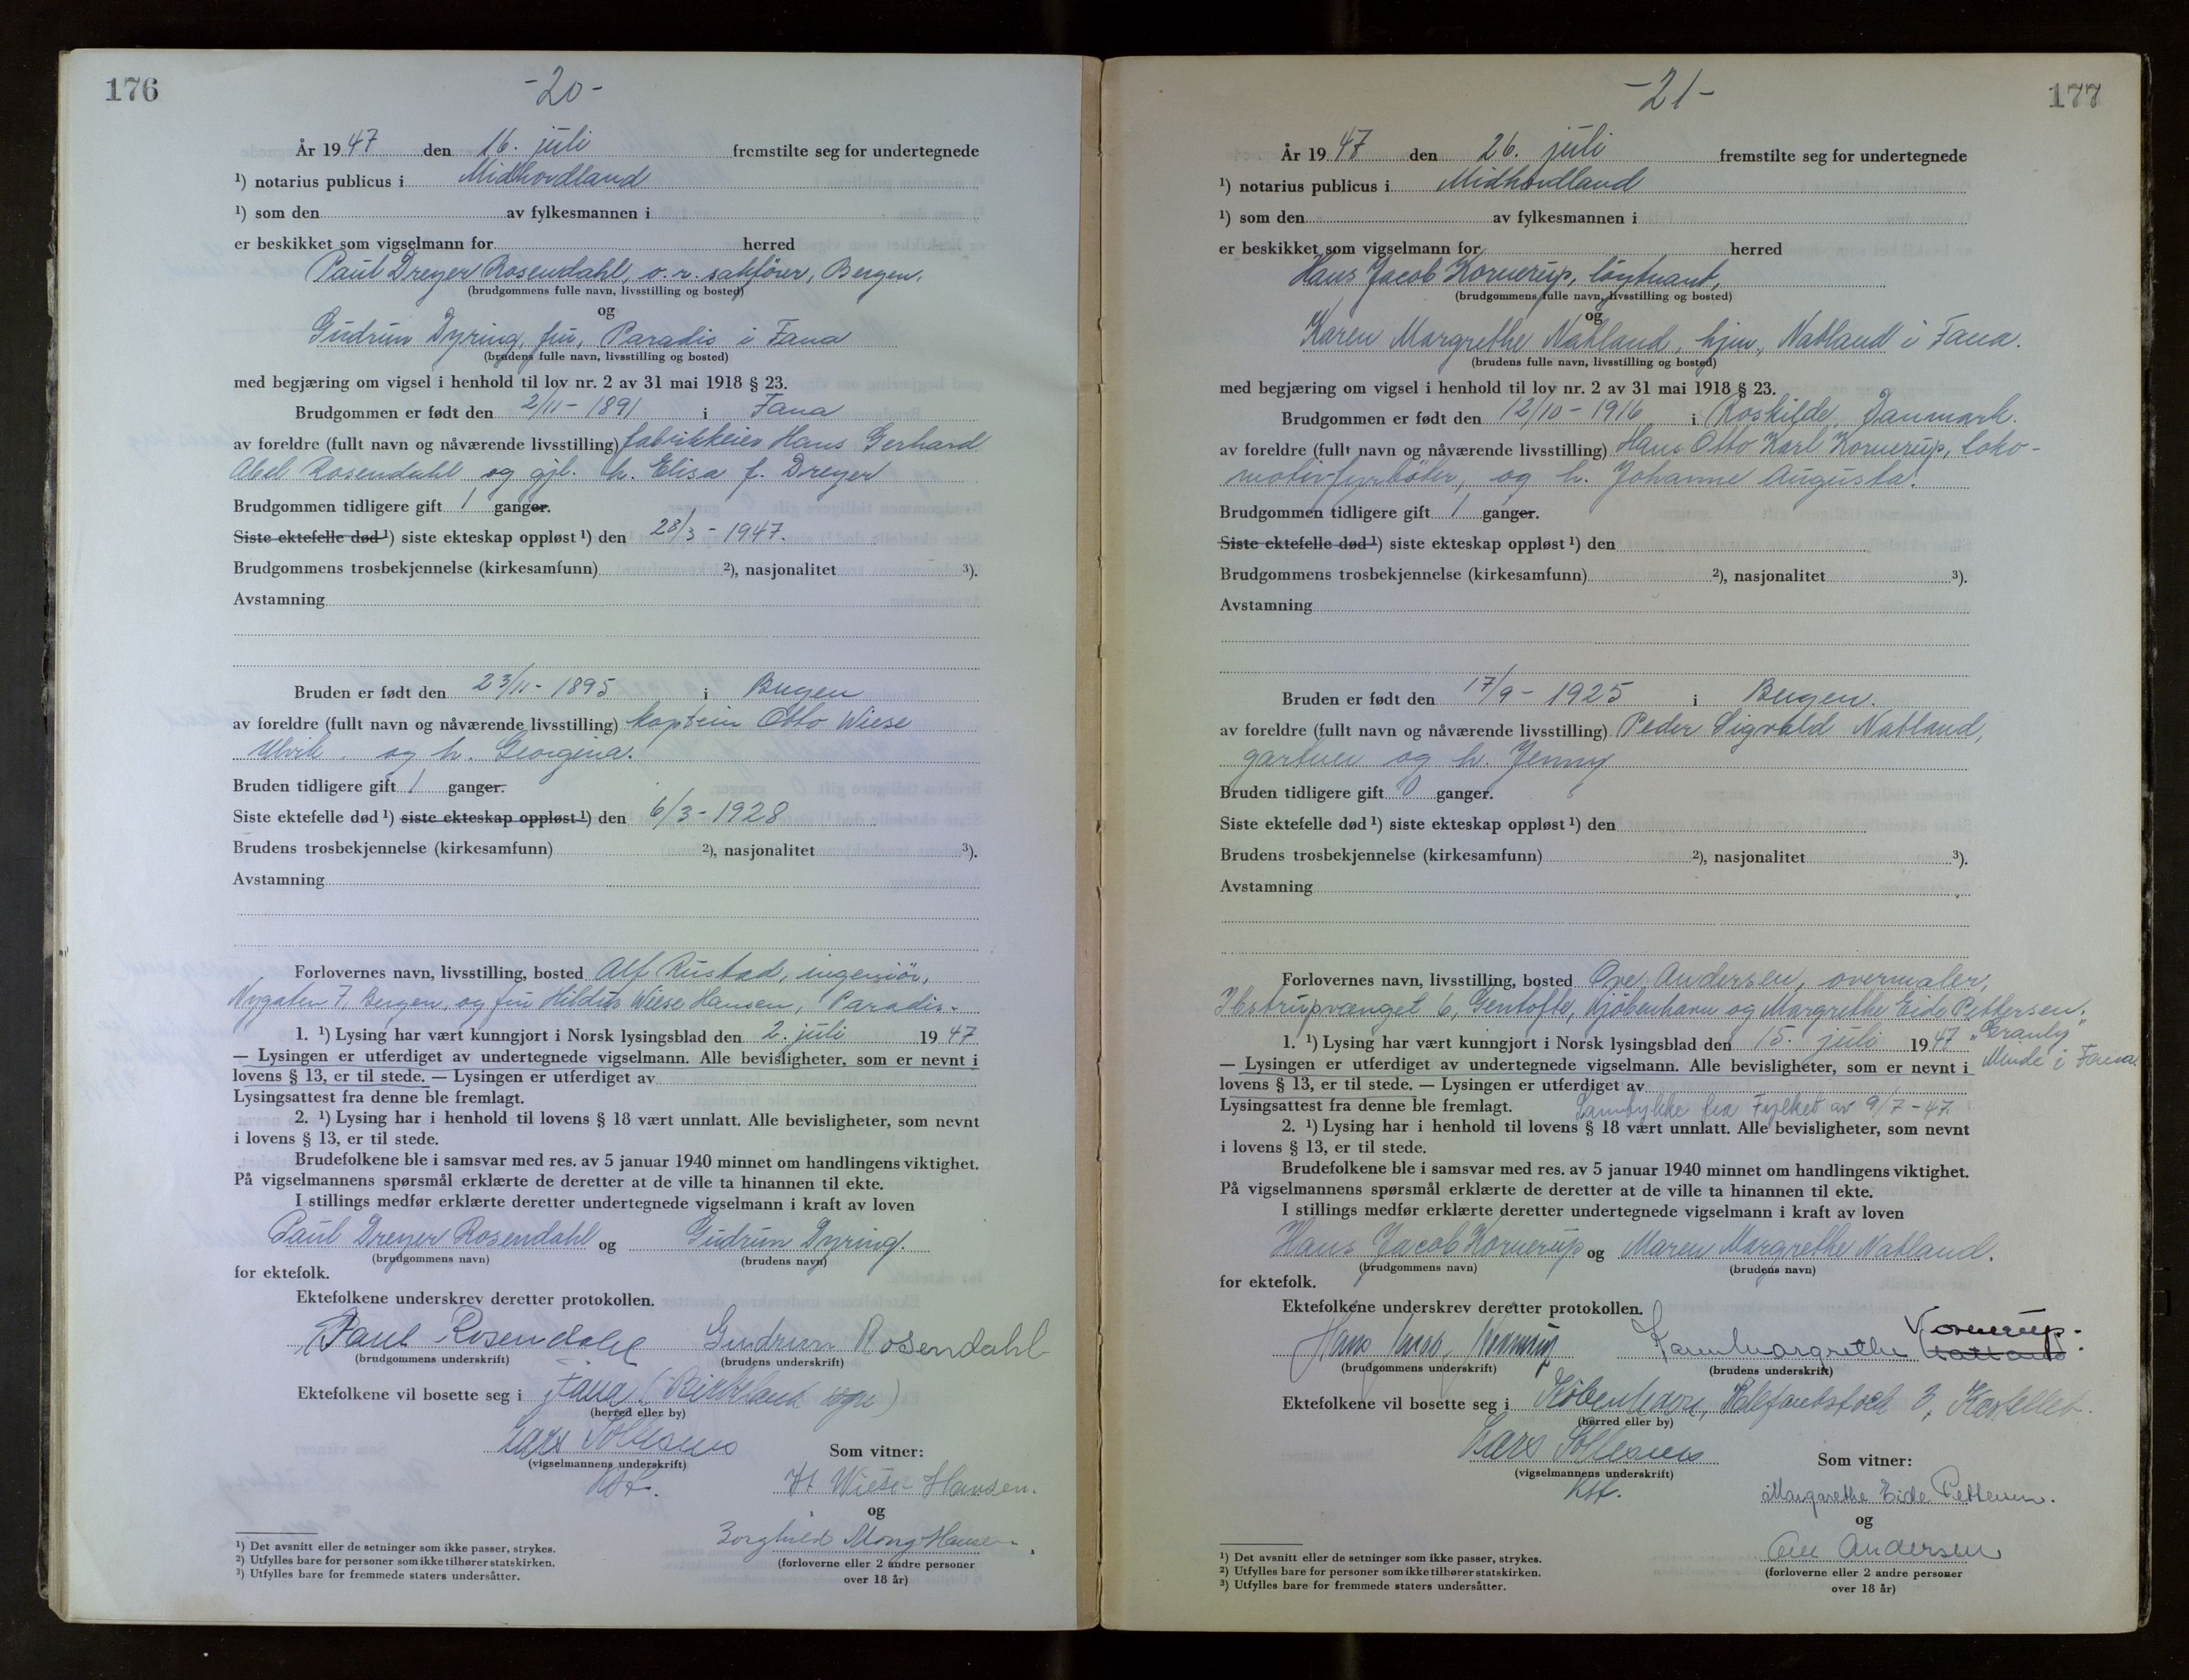 176
-20-
År 1947 den 16. juli fremstilte seg for undertegnede
¹) notarius publicus i Midhordland
¹) som den av fylkesmannen i
er beskikket som vigselmann for herred
Paul Dreyer Rosendahl, o.r. sakfører, Bergen,
(brudgommens fulle navn, livsstilling og bosted)
og
Gudrun Dyring, fru, Paradis i Fana
(brudens fulle navn, livsstilling og bosted)
med begjæring om vigsel i henhold til lov nr. 2 av 31 mai 1918 § 23.
Brudgommen er født den 2/11 - 1891 i Fana
av foreldre (fullt navn og nåværende livsstilling) fabrikkeier Hans Gerhard
Abel Rosendahl og gjl. h. Elisa f. Dreyer
Brudgommen tidligere gift 1 ganger.
Siste ektefelle død ¹) siste ekteskap oppløst ¹) den 28/3 - 1947.
Brudgommens trosbekjennelse (kirkesamfunn) ²), nasjonalitet ³).
Avstamning
Bruden er født den 23/11 - 1895 i Bergen
av foreldre (fullt navn og nåværende livsstilling) kaptein Otto Wiese
Ulvik, og h. Georgina.
Bruden tidligere gift 1 ganger.
Siste ektefelle død ¹) siste ekteskap oppløst ¹) den 6/3 - 1928
Brudens trosbekjennelse (kirkesamfunn) ²), nasjonalitet ³).
Avstamning
Forlovernes navn, livsstilling, bosted Alf Rustad, ingeniør,
Nygaten 7, Bergen, og fru Hildus Wiese Hansen, Paradis.
1. ¹) Lysing har vært kunngjort i Norsk lysingsblad den 2. juli 1947
— Lysingen er utferdiget av undertegnede vigselmann. Alle bevisligheter, som er nevnt i
lovens § 13, er til stede. — Lysingen er utferdiget av
Lysingsattest fra denne ble fremlagt.
2. ¹) Lysing har i henhold til lovens § 18 vært unnlatt. Alle bevisligheter, som nevnt
i lovens § 13, er til stede.
Brudefolkene ble i samsvar med res. av 5 januar 1940 minnet om handlingens viktighet.
På vigselmannens spørsmål erklærte de deretter at de ville ta hinannen til ekte.
I stillings medfør erklærte deretter undertegnede vigselmann i kraft av loven
Paul Dreyer Rosendahl og Gudrun Dyring.
(brudgommens navn) (brudens navn)
for ektefolk.
Ektefolkene underskrev deretter protokollen.
Paul Rosendahl Gudrun Rosendahl
(brudgommens underskrift) (brudens underskrift)
Ektefolkene vil bosette seg i Fana (Birkeland sogn)
(herred eller by)
Lars Sollesnes
(vigselmannens underskrift)
Som vitner:
H Wiese-Hansen.
og
Borghild Mong Hansen.
(forloverne eller 2 andre personer
over 18 år)
¹) Det avsnitt eller de setninger som ikke passer, strykes.
²) Utfylles bare for personer som ikke tilhører statskirken.
³) Utfylles bare for fremmede staters undersåtter.
177
-21-
År 1947 den 26. juli fremstilte seg for undertegnede
¹) notarius publicus i Midhordland
¹) som den av fylkesmannen i
er beskikket som vigselmann for herred
Hans Jacob Kornerup, løytnant,
(brudgommens fulle navn, livsstilling og bosted)
og
Karen Margrethe Natland, hjm., Natland i Fana.
(brudens fulle navn, livsstilling og bosted)
med begjæring om vigsel i henhold til lov nr. 2 av 31 mai 1918 § 23.
Brudgommen er født den 12/10 - 1916 i Roskilde, Danmark.
av foreldre (fullt navn og nåværende livsstilling) Hans Otto Karl Kornerup, loko-
motivfyrbøter, og h. Johanne Augusta.
Brudgommen tidligere gift 1 ganger.
Siste ektefelle død ¹) siste ekteskap oppløst ¹) den
Brudgommens trosbekjennelse (kirkesamfunn) ²), nasjonalitet ³).
Avstamning
Bruden er født den 17/9 - 1925 i Bergen.
av foreldre (fullt navn og nåværende livsstilling) Peder Sigvald Natland,
gartner og h. Jenny
Bruden tidligere gift 0 ganger.
Siste ektefelle død ¹) siste ekteskap oppløst ¹) den
Brudens trosbekjennelse (kirkesamfunn) ²), nasjonalitet ³).
Avstamning
Forlovernes navn, livsstilling, bosted Ove Andersen, overmaler,
Ibstrupvænget 6, Gentofte, Kjøbenhavn og Margrethe Eide Pettersen,
"Granly"
Minde i Fana.
1. ¹) Lysing har vært kunngjort i Norsk lysingsblad den 15. juli 1947
— Lysingen er utferdiget av undertegnede vigselmann. Alle bevisligheter, som er nevnt i
lovens § 13, er til stede. — Lysingen er utferdiget av
Lysingsattest fra denne ble fremlagt. Samtykke fra Fylket av 9/7-47.
2. ¹) Lysing har i henhold til lovens § 18 vært unnlatt. Alle bevisligheter, som nevnt
i lovens § 13, er til stede.
Brudefolkene ble i samsvar med res. av 5 januar 1940 minnet om handlingens viktighet.
På vigselmannens spørsmål erklærte de deretter at de ville ta hinannen til ekte.
I stillings medfør erklærte deretter undertegnede vigselmann i kraft av loven
Hans Jacob Kornerup og Maren Margrethe Natland.
(brudgommens navn) (brudens navn)
for ektefolk.
Ektefolkene underskrev deretter protokollen.
Hans Jacob Kornerup Karen Margrethe Natland Kornerup.
(brudgommens underskrift) (brudens underskrift)
Ektefolkene vil bosette seg i København, Elefantstock 3, Kastellet.
(herred eller by)
Lars Sollesnes
(vigselmannens underskrift)
Som vitner:
Margarethe Eide Pettersen.
og
Ove Andersen
(forloverne eller 2 andre personer
over 18 år)
¹) Det avsnitt eller de setninger som ikke passer, strykes.
²) Utfylles bare for personer som ikke tilhører statskirken.
³) Utfylles bare for fremmede staters undersåtter.